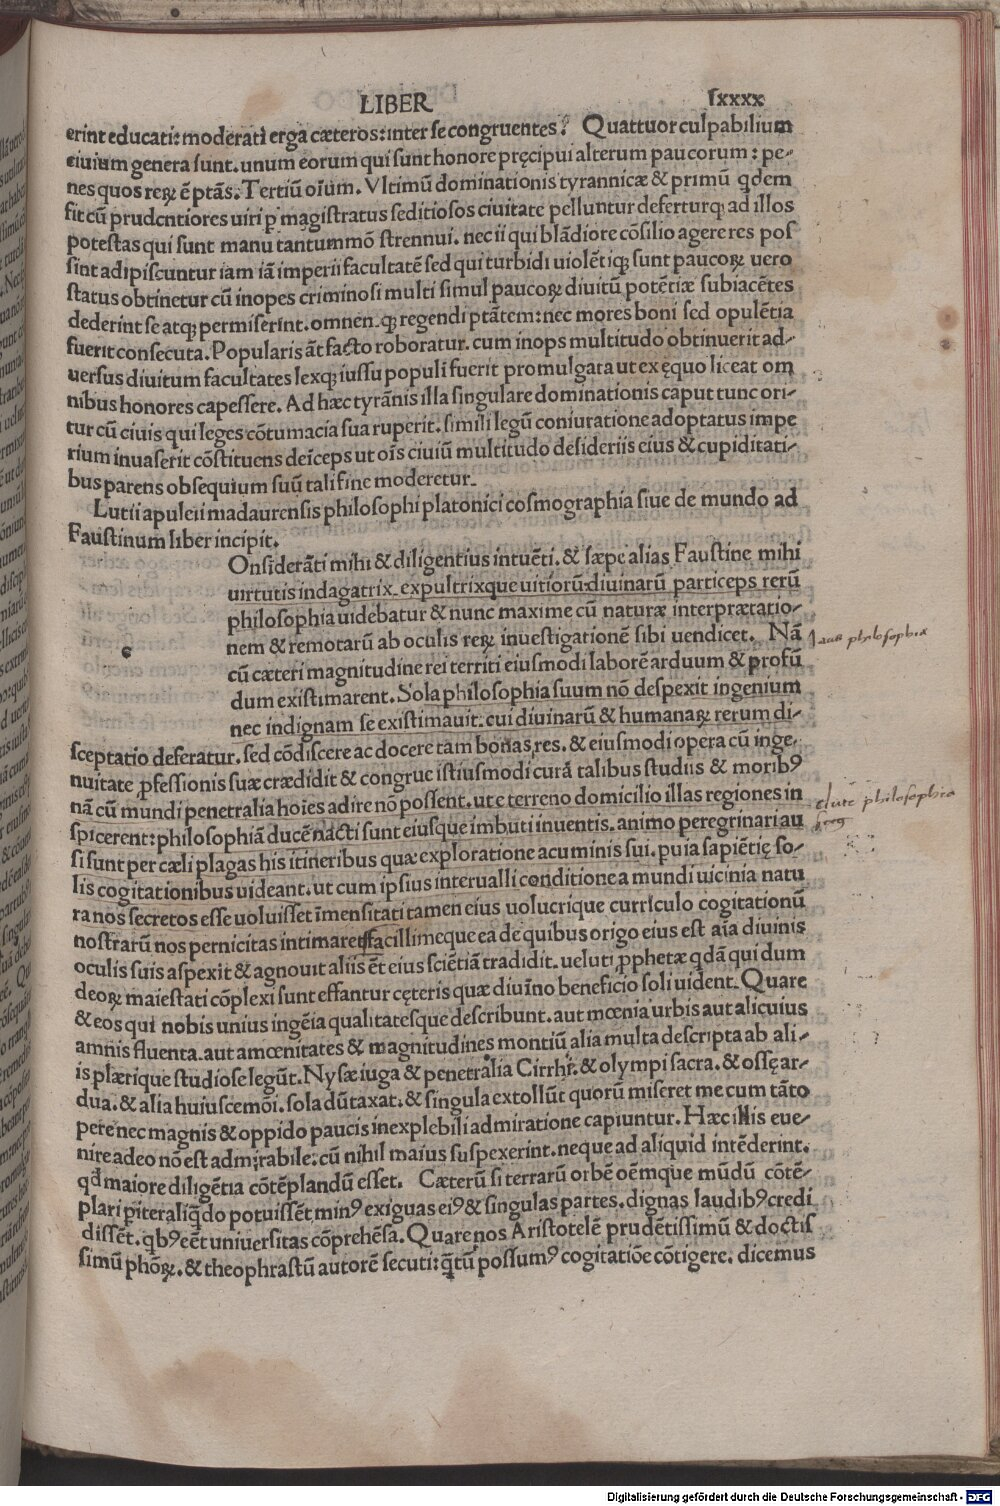 LIBER lxxxx
erint educati: moderati erga cæteros: inter se congruentes? Quattuor culpabilium
ciuium genera sunt. unum eorum qui sunt honore pręcipui alterum paucorum: pe-
nes quos reꝝ ē ptās. Tertiū oīum. Vltimū dominationis tyrannicæ & primū qdem
fit cū prudentiores uiri p magistratus seditiosos ciuitate pelluntur deferturq; ad illos
potestas qui sunt manu tantummō strennui. nec ii qui blādiore cōsilio agere res pos
sint adipiscuntur iam iā imperii facultatē sed qui turbidi uiolētiq; sunt paucoꝝ uero
status obtinetur cū inopes criminosi multi simul paucoꝝ diuitū potētiæ subiacētes
dederint se atq; permiserint. omnen q; regendi ptātem: nec mores boni sed opulētia
fuerit consecuta. Popularis āt facto roboratur. cum inops multitudo obtinuerit ad-
uersus diuitum facultates lexq; iussu populi fuerit promulgata ut ex ęquo liceat om
nibus honores capessere. Ad hæc tyrānis illa singulare dominationis caput tunc ori-
tur cū ciuis qui leges cōtumacia sua ruperit. simili legū coniuratione adoptatus impe
rium inuaserit cōstituens deīceps ut oīs ciuiū multitudo desideriis eius & cupiditati-
bus parens obsequium suū tali fine moderetur.
Lutii apuleii madaurensis philosophi platonici cosmographia siue de mundo ad
Faustinum liber incipit.
Onsiderāti mihi & diligentius intuēti. & sæpe alias Faustine mihi
uirtutis indagatrix. expultrixque uitiorū diuinarū particeps rerū
philosophia uidebatur & nunc maxime cū naturæ interprætatio-
nem & remotarū ab oculis reꝝ inuestigationē sibi uendicet. Nā
c
cū cæteri magnitudine rei territi eiusmodi laborē arduum & profū
dum existimarent. Sola philosophia suum nō despexit ingenium
nec indignam se existimauit. cui diuinarū & humanaꝝ rerum di-
sceptatio deferatur. sed cōdiscere ac docere tam bonas res. & eiusmodi opera cū inge-
nuitate ꝓfessionis suæ crædidit & congrue istiusmodi curā talibus studiis & moribꝰ
nā cū mundi penetralia hoīes adire nō possent. ut e terreno domicilio illas regiones in
spicerent: philosophiā ducē nacti sunt eiusque imbuti inuentis. animo peregrinari au
si sunt per cæli plagas his itineribus quæ exploratione acuminis sui. puia sapiētię so-
lis cogitationibus uideant. ut cum ipsius interualli conditione a mundi uicinia natu
ra nos secretos esse uoluisset īmensitati tamen eius uolucrique curriculo cogitationū
nostrarū nos pernicitas intimaret facillimeque ea de quibus origo eius est aīa diuinis
oculis suis aspexit & agnouit aliis ēt eius sciētiā tradidit. ueluti ꝓphetæ qdā qui dum
deoꝝ maiestati cōplexi sunt effantur cęteris quæ diuīno beneficio soli uident. Quare
& eos qui nobis unius ingēia qualitatesque describunt. aut mœnia urbis aut alicuius
amnis fluenta. aut amœnitates & magnitudines montiū alia multa descripta ab ali-
is plærique studiose legūt. Nysæ iuga & penetralia Cirrhę. & olympi sacra. & ossę ar-
dua. & alia huiuscemōi. sola dūtaxat. & singula extollūt quorū miseret me cum tāto
pere nec magnis & oppido paucis inexplebili admiratione capiuntur. Hæc illis eue-
nire adeo nō est admirabile. cū nihil maius suspexerint. neque ad aliquid intēderint.
qd maiore diligētia cōtēplandū esset. Cæterū si terrarū orbē oēmque mūdū cōtē-
plari piter aliqdo potuissēt minꝰ exiguas eiꝰ & singulas partes. dignas laudibꝰ credi
dissēt. qbꝰ eēt uniuersitas cōprehēsa. Quare nos Aristotelē prudētissimū & doctis
simū phōꝝ. & theophrastū autorē secuti: qtū possumꝰ cogitatiōe cōtigere. dicemus
laus philosophiæ
philosophia
Digitalisierung gefördert durch die Deutsche Forschungsgemeinschaft - DFG